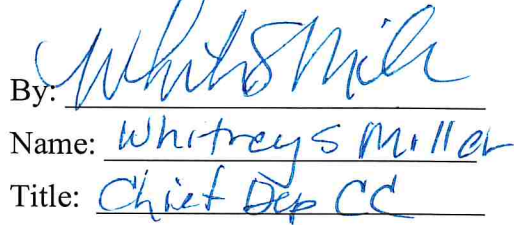 By: Whit S Mill
Name: Whitney S Miller
Title: Chief Dep CC